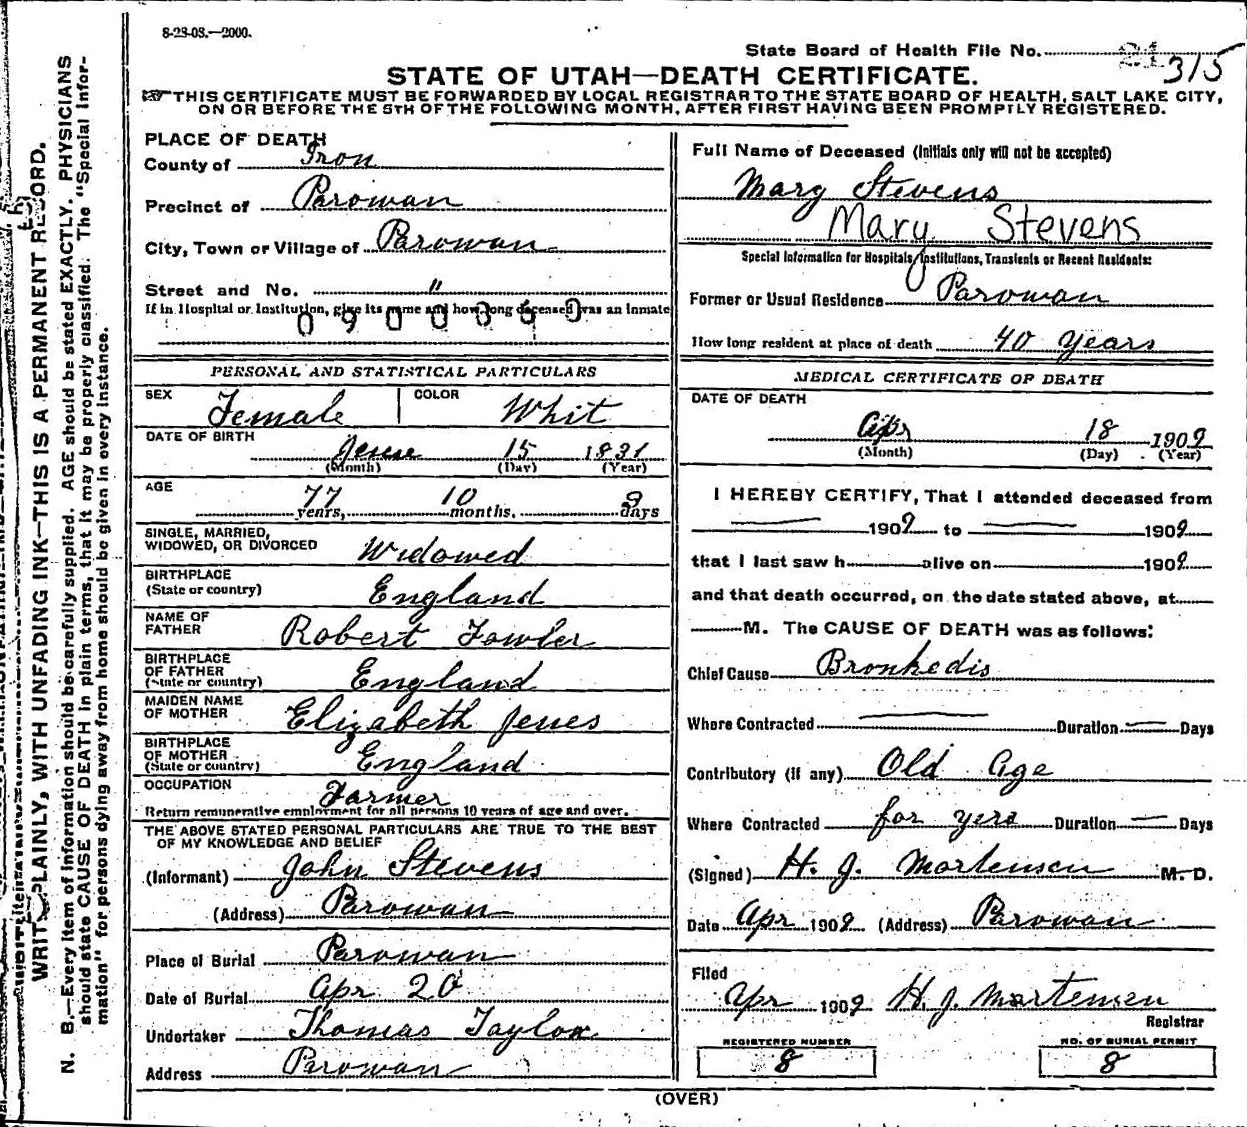 8-23-08.—2000.
State Board of Health File No. 21 315
STATE OF UTAH—DEATH CERTIFICATE.
THIS CERTIFICATE MUST BE FORWARDED BY LOCAL REGISTRAR TO THE STATE BOARD OF HEALTH, SALT LAKE CITY,
ON OR BEFORE THE 5TH OF THE FOLLOWING MONTH, AFTER FIRST HAVING BEEN PROMPTLY REGISTERED.
PLACE OF DEATH
County of Iron
Precinct of Parowan
City, Town or Village of Parowan
Street and No. "
If in Hospital or Institution, give its name and how long deceased was an inmate
PERSONAL AND STATISTICAL PARTICULARS
SEX Female COLOR Whit
DATE OF BIRTH June 15 1831
(Month) (Day) (Year)
AGE 77 years, 10 months, days
SINGLE, MARRIED,
WIDOWED, OR DIVORCED Widowed
BIRTHPLACE
(State or country) England
NAME OF
FATHER Robert Fowler
BIRTHPLACE
OF FATHER
(State or country) England
MAIDEN NAME
OF MOTHER Elizabeth
BIRTHPLACE
OF MOTHER
(State or country) England
OCCUPATION Farmer
Return remunerative employment for all persons 10 years of age and over.
THE ABOVE STATED PERSONAL PARTICULARS ARE TRUE TO THE BEST
OF MY KNOWLEDGE AND BELIEF
(Informant) John Stevens
(Address) Parowan
Place of Burial Parowan
Date of Burial Apr 20
Undertaker Thomas Taylor
Address Parowan
Full Name of Deceased (Initials only will not be accepted)
Mary Stevens
Mary Stevens
Special Information for Hospitals, Institutions, Transients or Recent Residents:
Former or Usual Residence Parowan
How long resident at place of death 40 years
MEDICAL CERTIFICATE OF DEATH
DATE OF DEATH
Apr 18 1909
(Month) (Day) (Year)
I HEREBY CERTIFY, That I attended deceased from
1909 to 1909
that I last saw h alive on 1909
and that death occurred, on the date stated above, at
M. The CAUSE OF DEATH was as follows:
Chief Cause Bronkedis
Where Contracted Duration Days
Contributory (if any) Old Age
Where Contracted for yers Duration Days
(Signed) H. J. Mortensen M. D.
Date Apr 1909 (Address) Parowan
Filed
Apr 1909 H. J. Mortensen
Registrar
REGISTERED NUMBER
8
NO. OF BURIAL PERMIT
8
(OVER)
WRITE PLAINLY, WITH UNFADING INK—THIS IS A PERMANENT RECORD.
N. B.—Every item of information should be carefully supplied. AGE should be stated EXACTLY. PHYSICIANS
should state CAUSE OF DEATH in plain terms, that it may be properly classified. The "Special Infor-
mation" for persons dying away from home should be given in every instance.